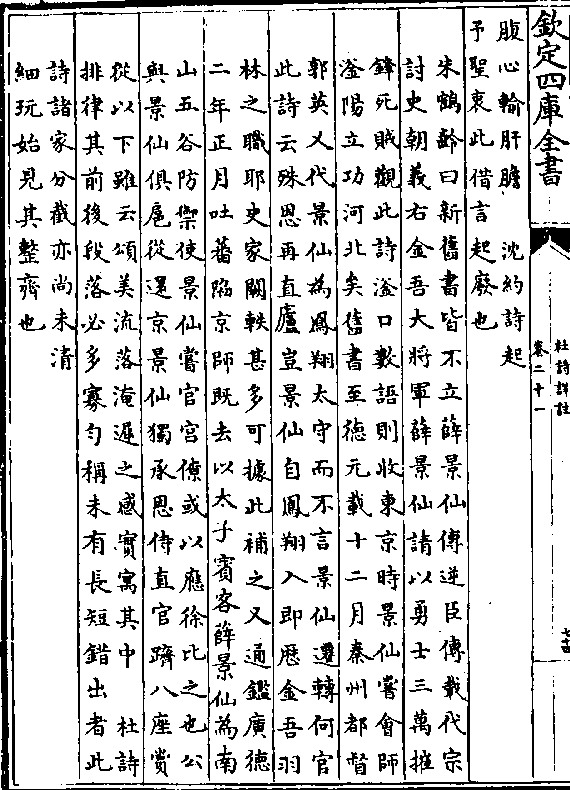 欽定四庫全書
杜詩詳註
卷二十一
七十四
腹心輸肝膽　沈約詩起
予聖衷此借言起廢也
朱鶴齡曰新舊書皆不立薛景仙傳逆臣傳載代宗
討史朝義右金吾大將軍薛景仙請以勇士三萬摧
鋒死賊觀此詩滏口數語則收東京時景仙嘗會師
滏陽立功河北矣舊書至德元載十二月秦州都督
郭英乂代景仙為鳳翔太守而不言景仙遷轉何官
此詩云殊恩再直廬豈景仙自鳳翔入即歴金吾羽
林之職耶史家闕軼甚多可據此補之又通鑑廣德
二年正月吐蕃陷京師既去以太子賓客薛景仙為南
山五谷防禦使景仙嘗官宫僚或以應徐比之也公
與景仙俱扈從還京景仙獨承恩侍直官躋八座賞
從以下雖云頌美流落淹遲之感實寓其中　杜詩
排律其前後段落必多寡勻稱未有長短錯出者此
詩諸家分截亦尚未清
細玩始見其整齊也